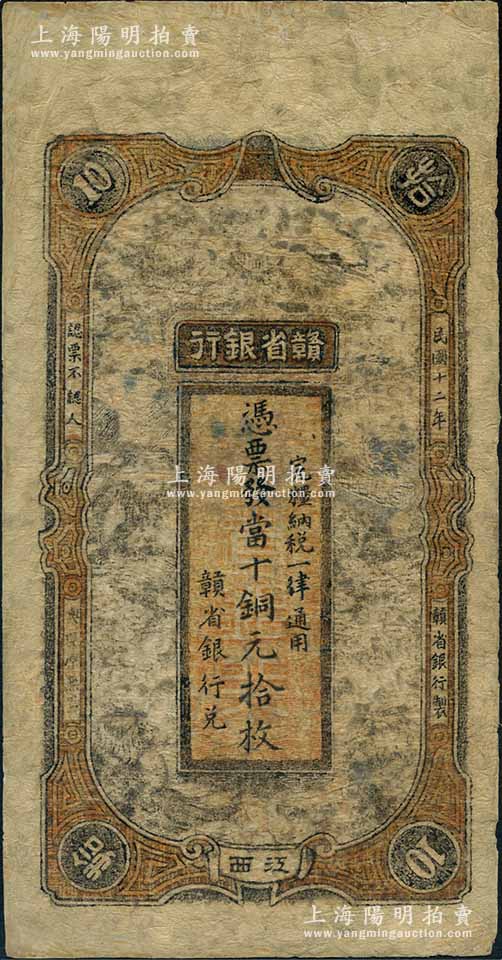 上海陽明拍賣
www.yangmingauction.com
上海陽明拍賣
www.yangmingauction.com
10
拾
贛省銀行
民國十二年
贛省銀行製
納税一律通用
憑票發當十銅元拾枚
贛省銀行兑
認票不認人
上海陽明拍賣
www.yangmingauction.com
江西
拾
10
上海陽明拍賣
www.yangmingauction.com